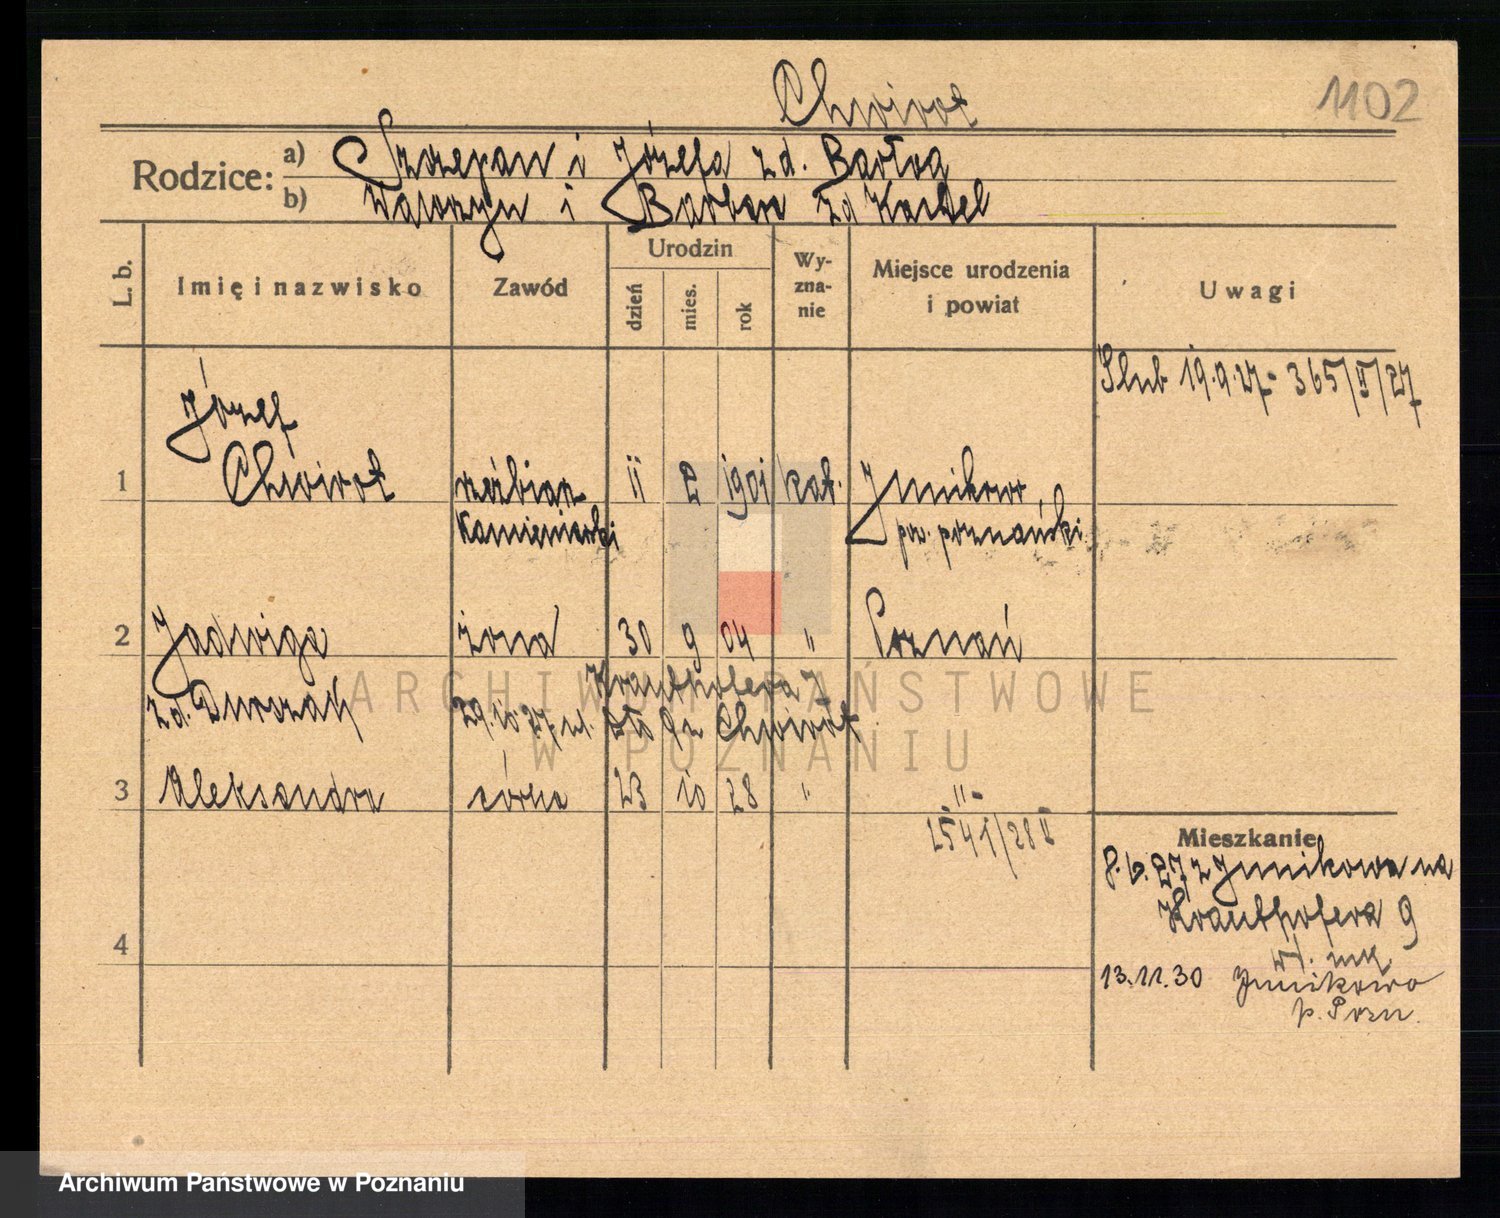 Chwirot
1102
Rodzice:
a) Szczepan i Józefa zd. Bartoa
b) Wawrzyn i Barbara zd
L. b.
Imię i nazwisko
Zawód
Urodzin
dzień
mies.
rok
Wy-
zna-
nie
Miejsce urodzenia
i powiat
Uwagi
Slub 19.9.27 - 365/II/27
Józef
1 Chwirot rzeźbiarz 11 2 1901 kat. Junikowo,
Kamieniarski pow. poznański
2 Jadwiga żona 30 9 04 " Poznań
zd. Dworzak Krauthofera
29.10.27 Chwirot
3 Aleksandra córka 23 10 28 " -"-
2541/28 II
4
Mieszkanie
8.6.27 z Junikowa na
Krauthofera 9
13.11.30 Junikowo
p. Pozn.
ARCHIWUM PAŃSTWOWE
W POZNANIU
Archiwum Państwowe w Poznaniu